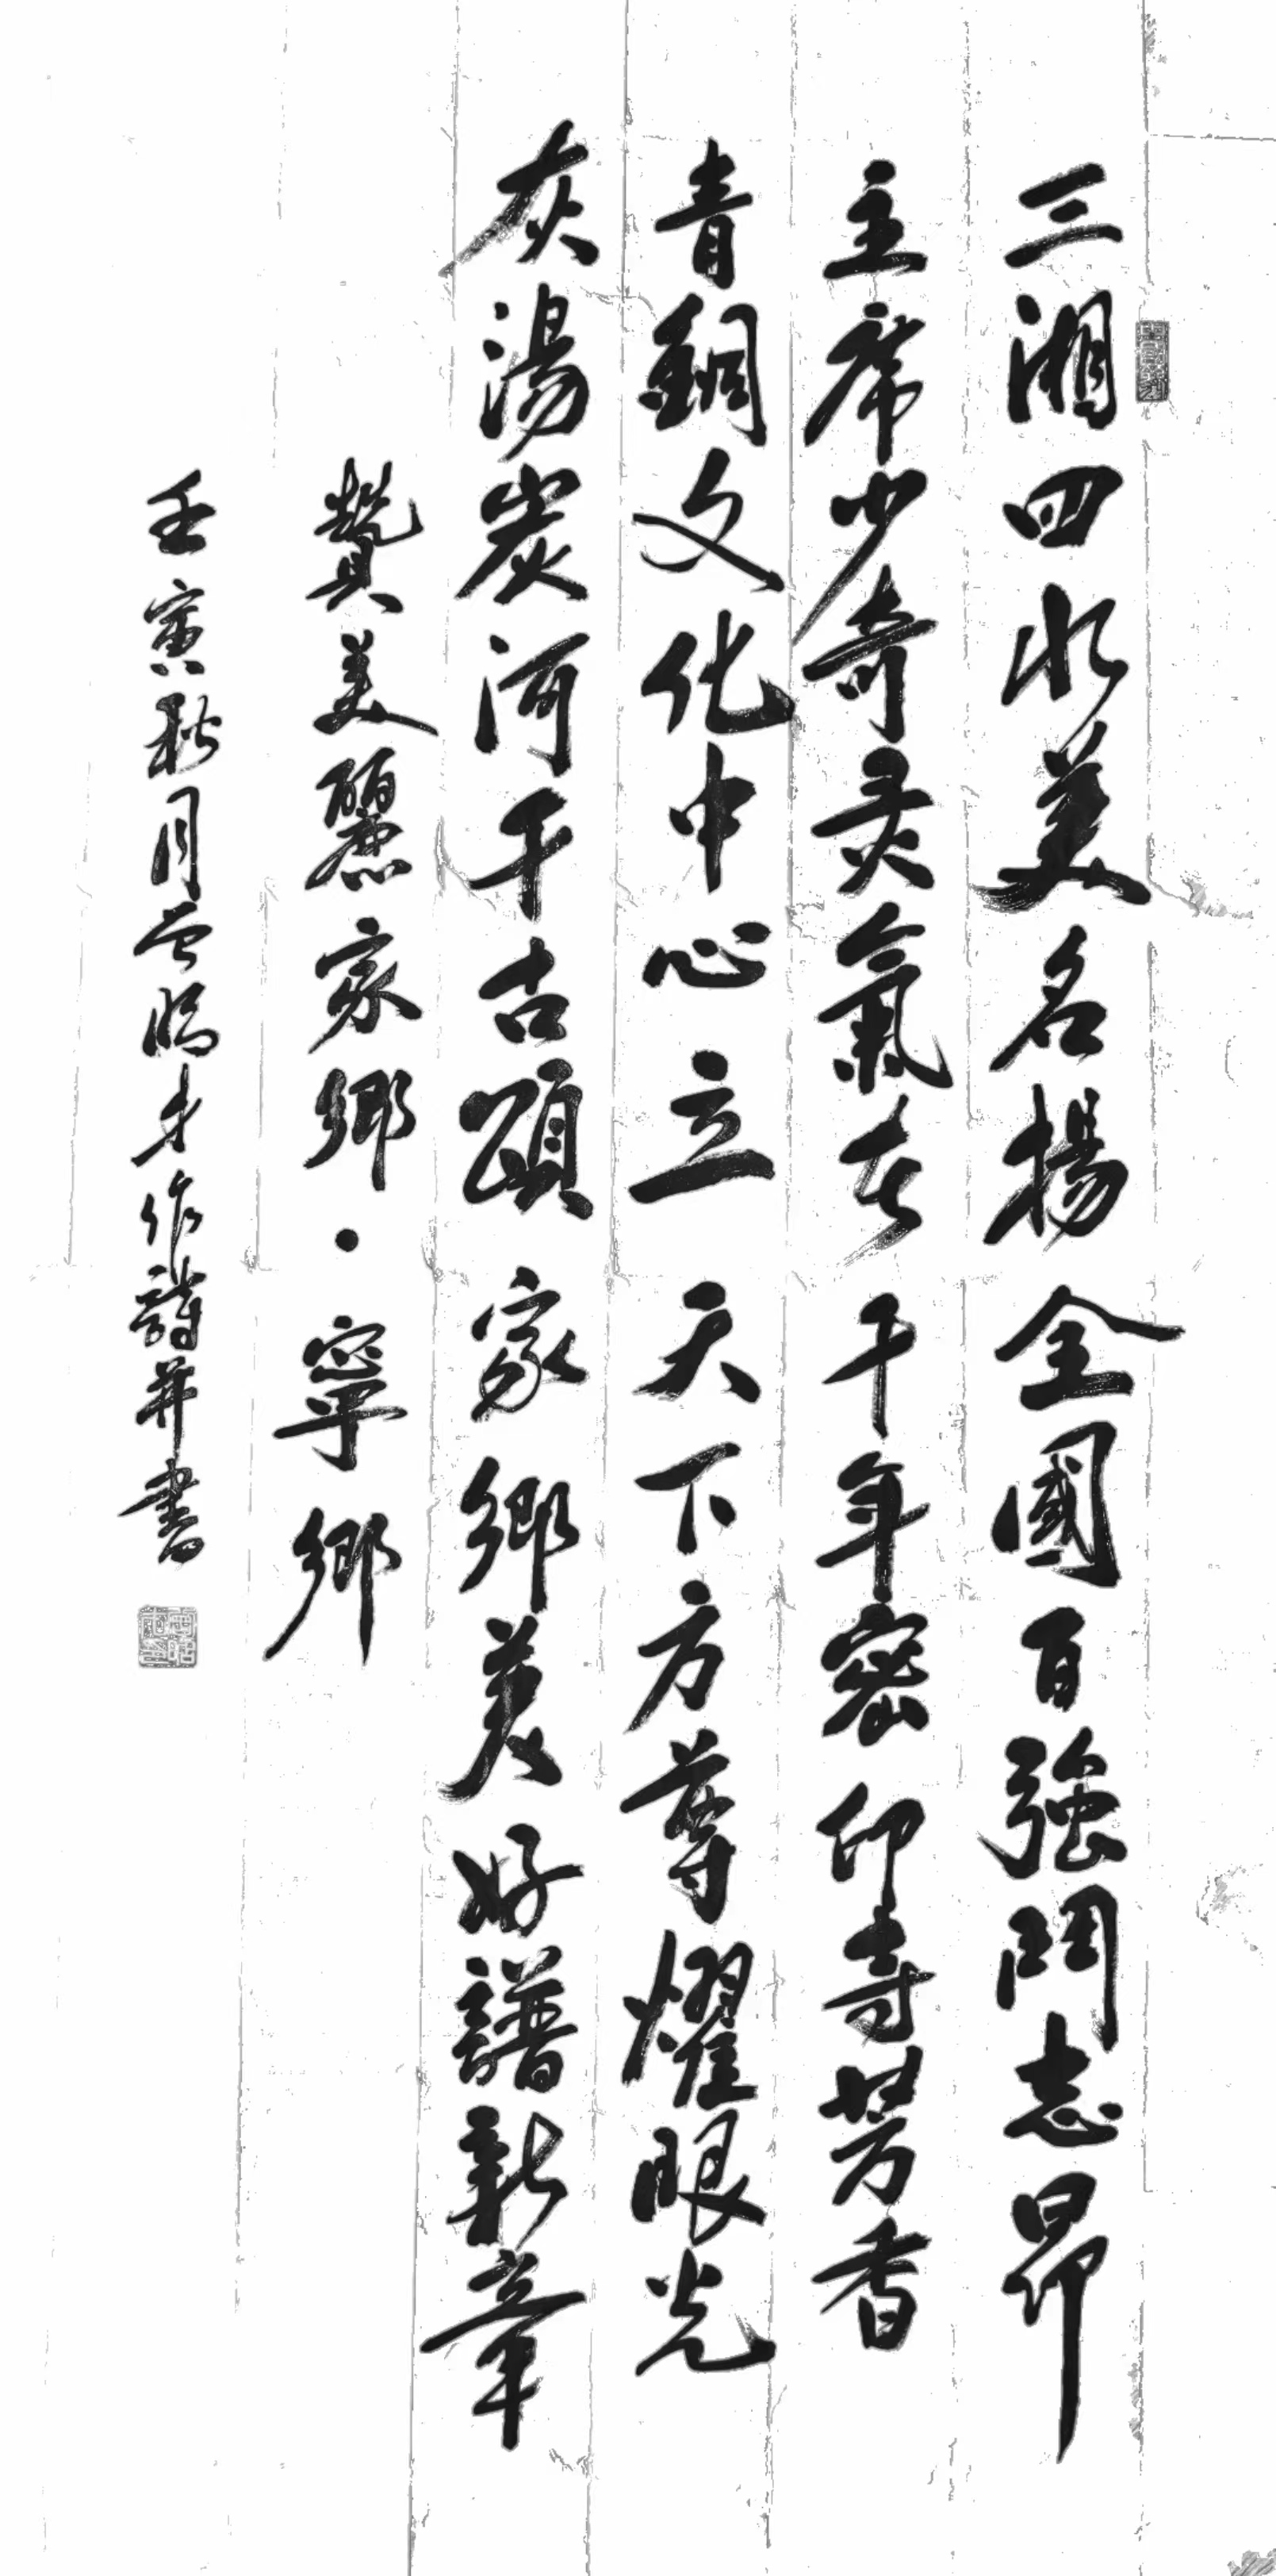 三湘四水美名揚全國百強鬥志昂
主席少奇靈氣在千年密印寺芳香
青銅文化中心立天下方尊耀眼光
灰湯炭河千古頌家鄉美好譜新章
贊美麗家鄉·寧鄉
壬寅秋月曾 才作詩并書